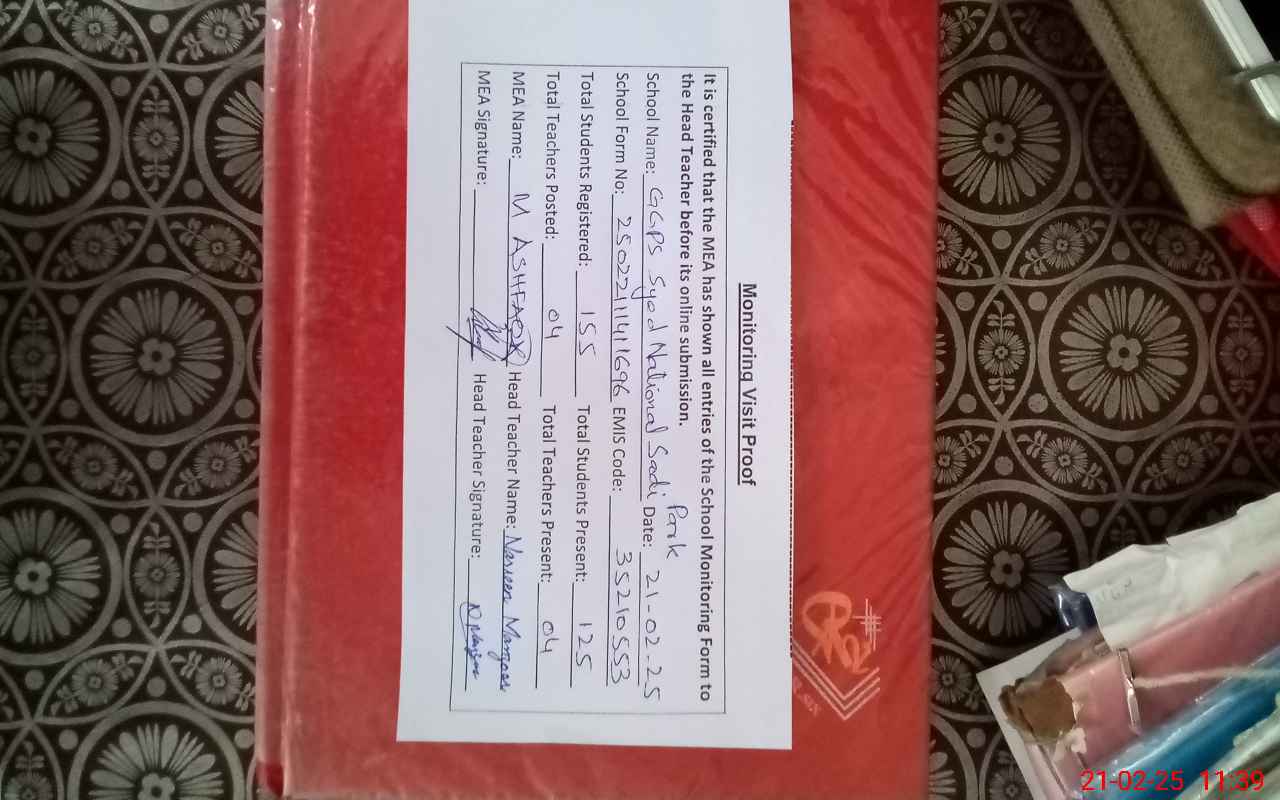 Monitoring Visit Proof
It is certified that the MEA has shown all entries of the School Monitoring Form to
the Head Teacher before its online submission.
School Name: GGPS Syed National Sadi Park Date: 21-02-25
School Form No: 2502211411696 EMIS Code: 35210553
Total Students Registered: 155 Total Students Present: 125
Total Teachers Posted: 04 Total Teachers Present: 04
MEA Name: M ASHFAQ Head Teacher Name: Nasreen
MEA Signature: Head Teacher Signature:
21-02-25 11:39